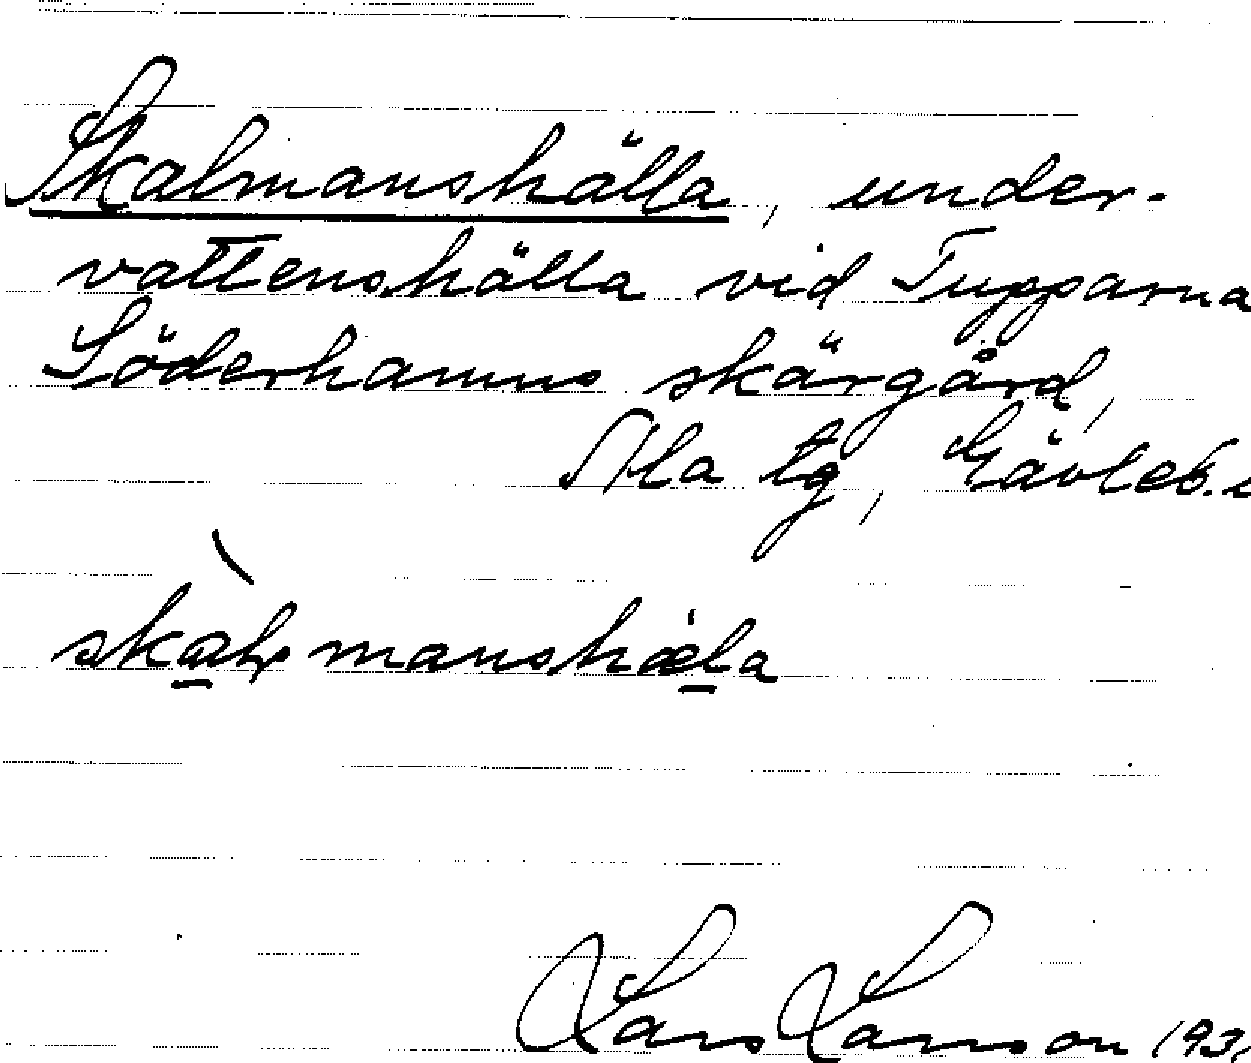 Skalmanshälla, under-
vattenshälla vid Tupparna
Söderhamns skärgård,
Ala tg, Gävleb.
manshæla
Lars Larsson